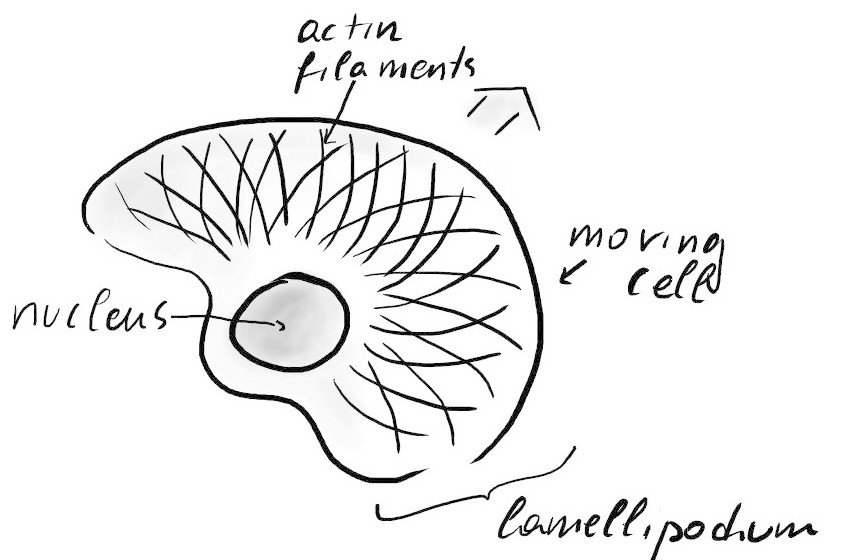 actin
filaments
moving
cell
nucleus
lamellipodium